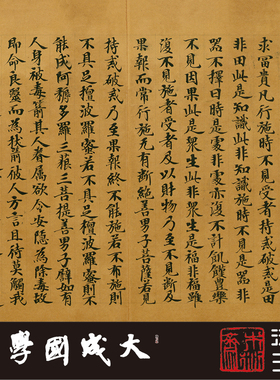 求富貴凡行施時不見持戒破戒是田
非田此是知識此非知識施時不見是器非
器不擇日時是處非處亦復不計飢饉豐樂
不見因果此是眾生此非眾生是福非福雖
復不見施者受者及以財物乃至不見斷及
果報而常行施无有斷絕善男子菩薩若見
持戒破戒乃至果報終不能施若不布施則
不具足檀波羅蜜若不具足檀波羅蜜則不
能成阿耨多羅三藐三菩提善男子譬如有
人身被毒箭其人眷屬欲令安隱為除毒故
即命良醫而為拔箭彼人方言且待莫觸我
大成國學